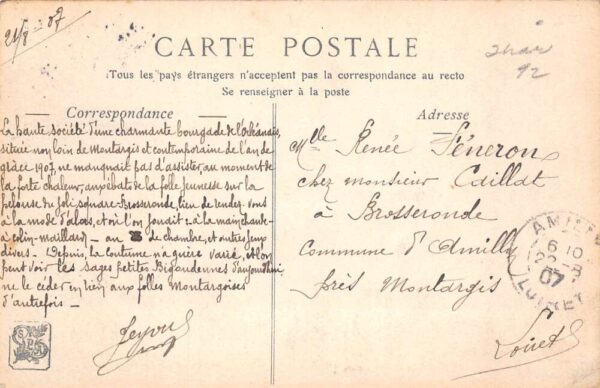 21/8 - 07
CARTE POSTALE
Tous les pays étrangers n'acceptent pas la correspondance au recto
Se renseigner à la poste
Correspondance
La haute société d'une charmante bourgade de l'Orléanais,
située non loin de Montargis et contemporaine de l'an de
grâce 1907, ne manquait pas d'assister, au moment de
la forte chaleur, aux ébats de la folle jeunesse sur la
pelouse du joli square Brosseronde, lieu de rendez-vous
à la mode d'alors, et où l'on jouait : à la main chaude -
à colin-maillard - au de chambre, et autres jeux
divers. - Depuis, la coutume n'a guère varié, et l'on
peut voir les sages petites Bigoudennes d'aujourd'hui
ne le céder en rien aux folles Montargoises
d'autrefois -
Adresse
Mlle Renée Féneron
chez monsieur Caillat
à Brosseronde
Commune d'Amilly
près Montargis
Loiret
AMILLY
6 10
07
LOIRET